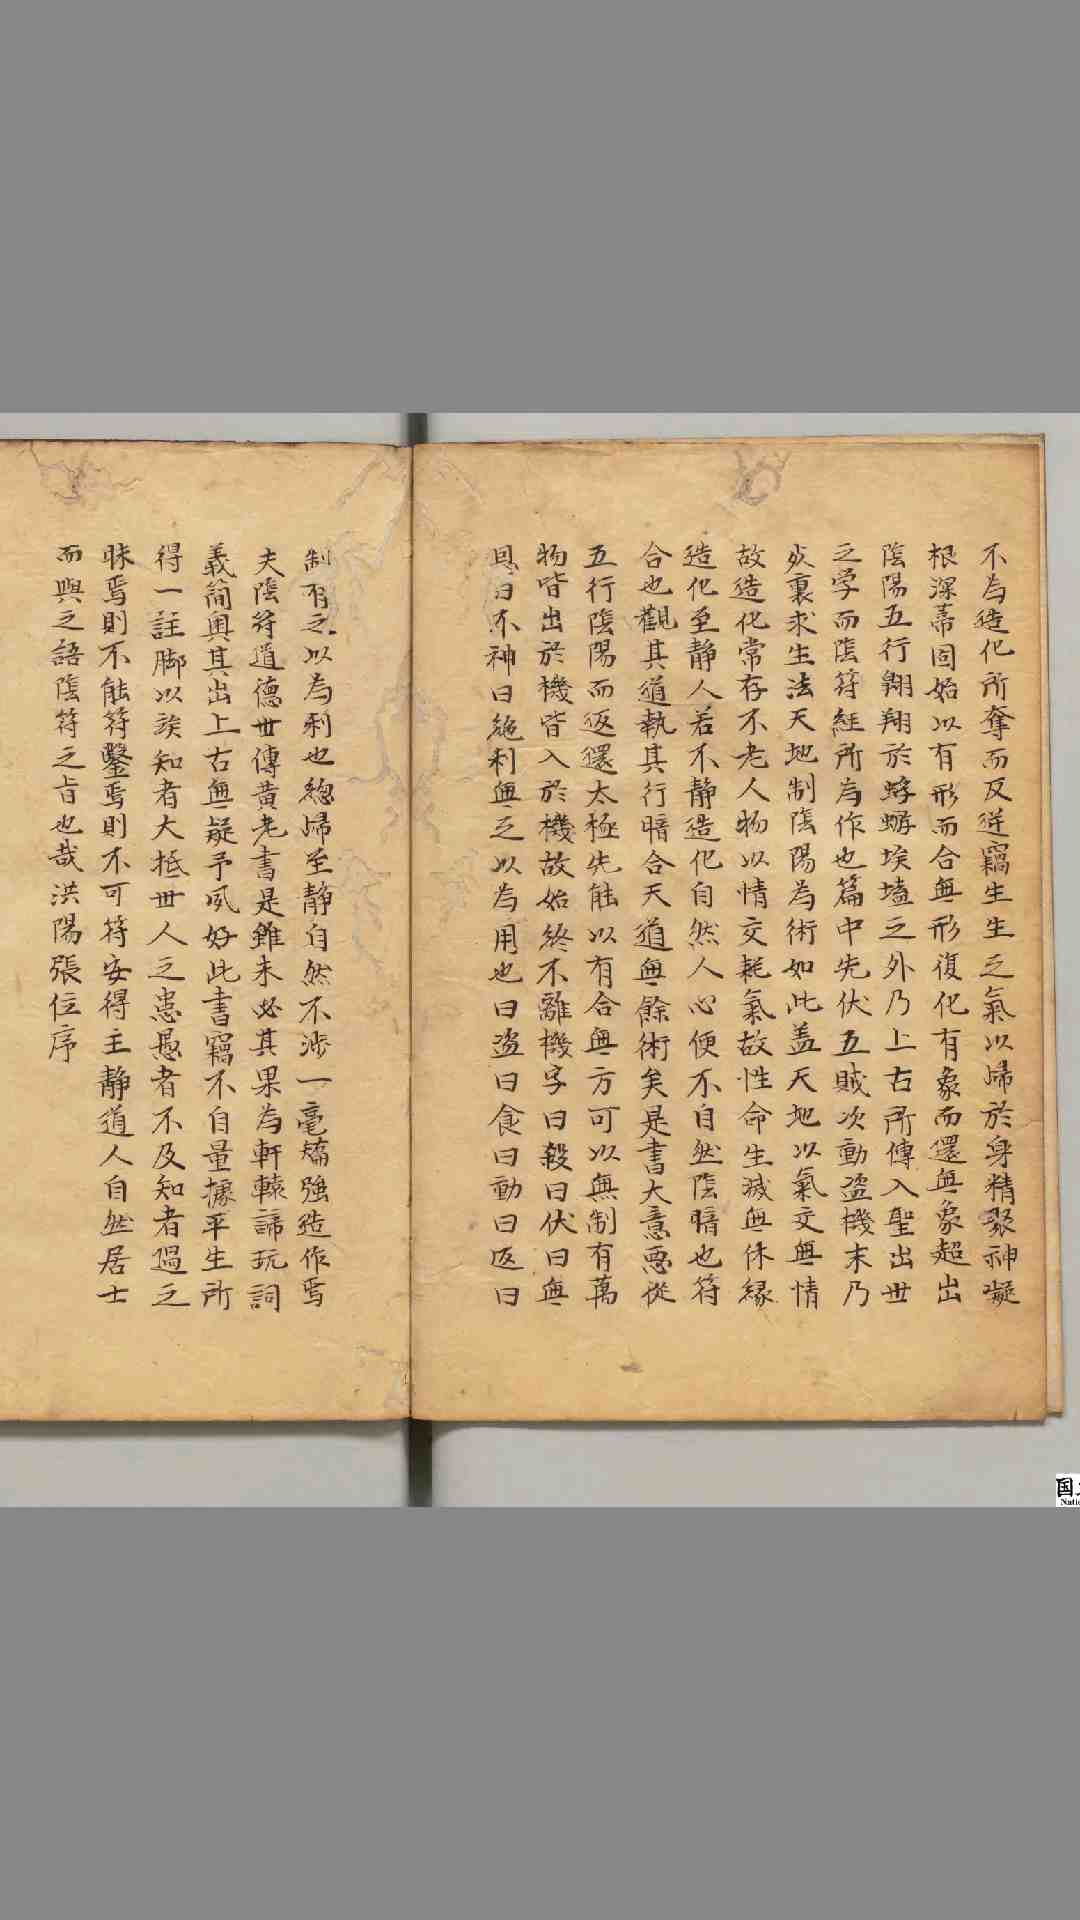 不為造化所奪而反逆竊生生之氣以歸於身精聚神凝
根深蒂固始以有形而合無形復化有象而還無象超出
陰陽五行翺翔於蜉蝣埃壒之外乃上古所傳入聖出世
之学而陰符經所為作也篇中先伏五賊次動盗機末乃
死裏求生法天地制陰陽為術如此盖天地以氣交無情
故造化常存不老人物以情交耗氣故性命生滅無休縁
造化至静人若不静造化自然人心便不自然陰暗也符
合也觀其道執其行暗合天道無餘術矣是書大意悪從
五行陰陽而返還太極先能以有合無方可以無制有萬
物皆出於機皆入於機故始終不離機字曰殺曰伏曰無
恩曰不神曰絶利無之以為用也曰盗曰食曰動曰返曰
制有之以為利也總歸至静自然不渉一毫矯強造作焉
夫陰符道德世傳黄老書是雖未必其果為軒轅諦玩詞
義簡奥其出上古無疑予夙好此書竊不自量據平生所
得一註脚以俟知者大抵世人之患愚者不及知者過之
昧焉則不能符鑿焉則不可符安得主静道人自然居士
而與之語陰符之旨也哉洪陽張位序
国
Natio